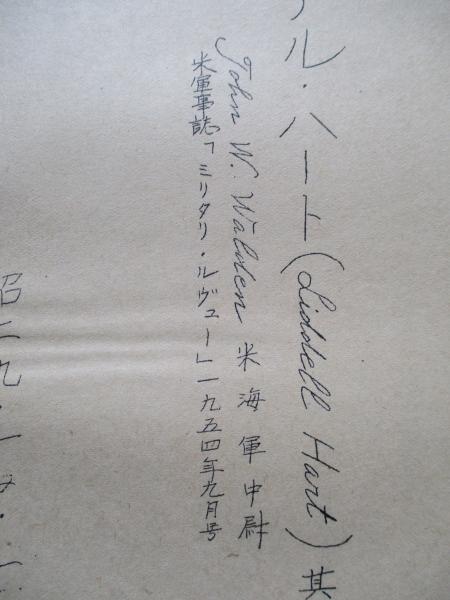 ル・ハート(Liddell Hart)其
John W. Walden 米海軍中尉
米軍事誌「ミリタリ・ルヴュー」一九五四年九月号
昭二九・一